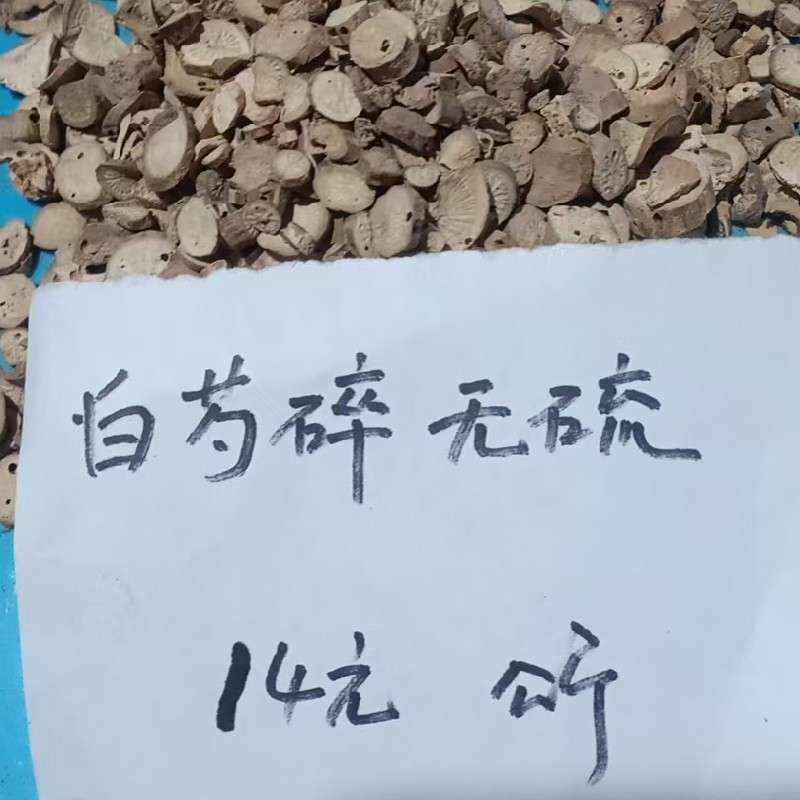 白芍碎 无硫
14元 公斤